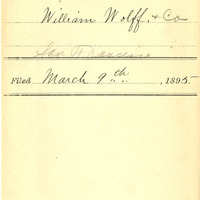 William Wolff & Co
San Francisco
Filed March 9th, 1895-